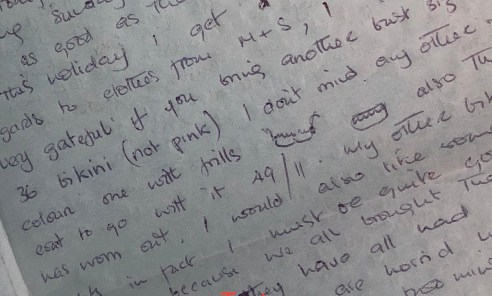 as good as the
this holiday, I get
gards to clothes from M+S, I
very grateful if you bring another bust size
36 bikini (not pink) I don't mind any other
colour one with frills also the
coat to go with it 49/11. My other biki
has worn out. I would also like some
in fact I must be quite go
because we all brought the
they have all had
are horrid